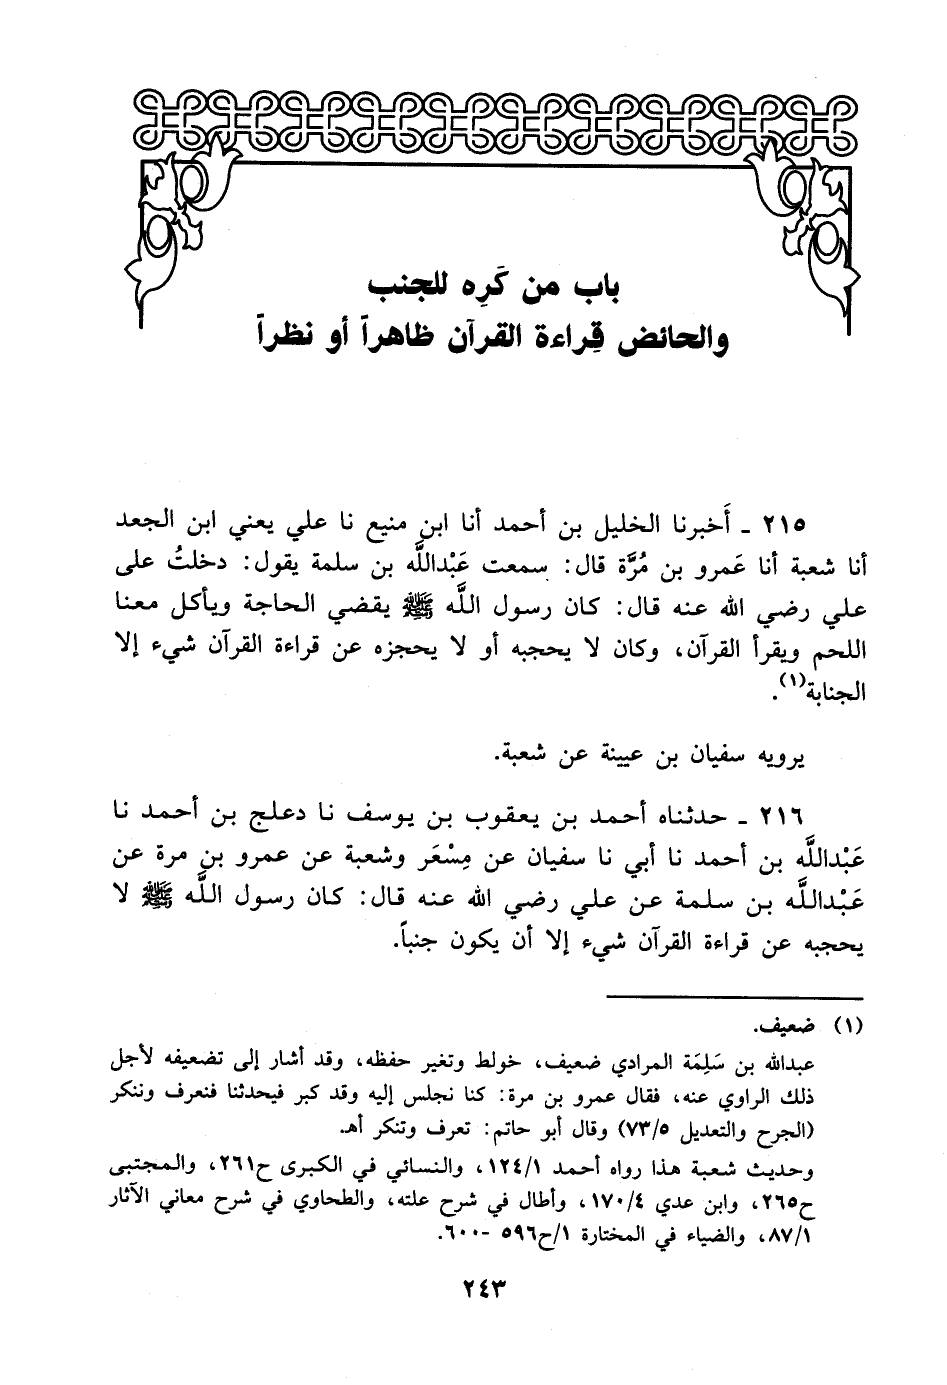 باب من كَرِه للجنب
والحائض قِراءة القرآن ظاهراً أو نظراً
٢١٥ ـ أَخبرنا الخليل بن أحمد أنا ابن منيع نا علي يعني ابن الجعد
أنا شعبة أنا عَمرو بن مُرَّة قال: سمعت عَبْداللَّه بن سلمة يقول: دخلتُ على
علي رضي الله عنه قال: كان رسول اللَّه ﷺ يقضي الحاجة ويأكل معنا
اللحم ويقرأ القرآن، وكان لا يحجبه أو لا يحجزه عن قراءة القرآن شيء إلا
الجنابة(١).
يرويه سفيان بن عيينة عن شعبة.
٢١٦ ـ حدثناه أحمد بن يعقوب بن يوسف نا دعلج بن أحمد نا
عَبْداللَّه بن أحمد نا أبي نا سفيان عن مِسْعَر وشعبة عن عمرو بن مرة عن
عَبْداللَّه بن سلمة عن علي رضي الله عنه قال: كان رسول اللَّه ﷺ لا
يحجبه عن قراءة القرآن شيء إلا أن يكون جنباً.
(١) ضعيف.
عبدالله بن سَلِمَة المرادي ضعيف، خولط وتغير حفظه، وقد أشار إلى تضعيفه لأجل
ذلك الراوي عنه، فقال عمرو بن مرة: كنا نجلس إليه وقد كبر فيحدثنا فنعرف وننكر
(الجرح والتعديل ٧٣/٥) وقال أبو حاتم: تعرف وتنكر أهـ.
وحديث شعبة هذا رواه أحمد ١٢٤/١، والنسائي في الكبرى ح٢٦١، والمجتبى
ح٢٦٥، وابن عدي ١٧٠/٤، وأطال في شرح علته، والطحاوي في شرح معاني الآثار
٨٧/١، والضياء في المختارة ١/ح٥٩٦ -٦٠٠.
٢٤٣